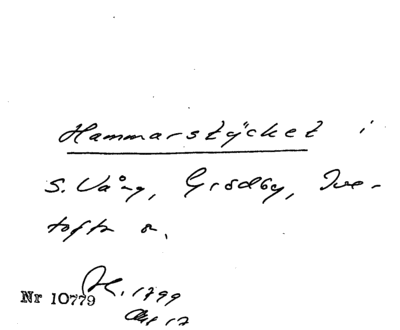 Hammarstycket i
S. Vång, Grödby, Ive-
tofta s.
Nr 10779 H. 1799
Akt 17